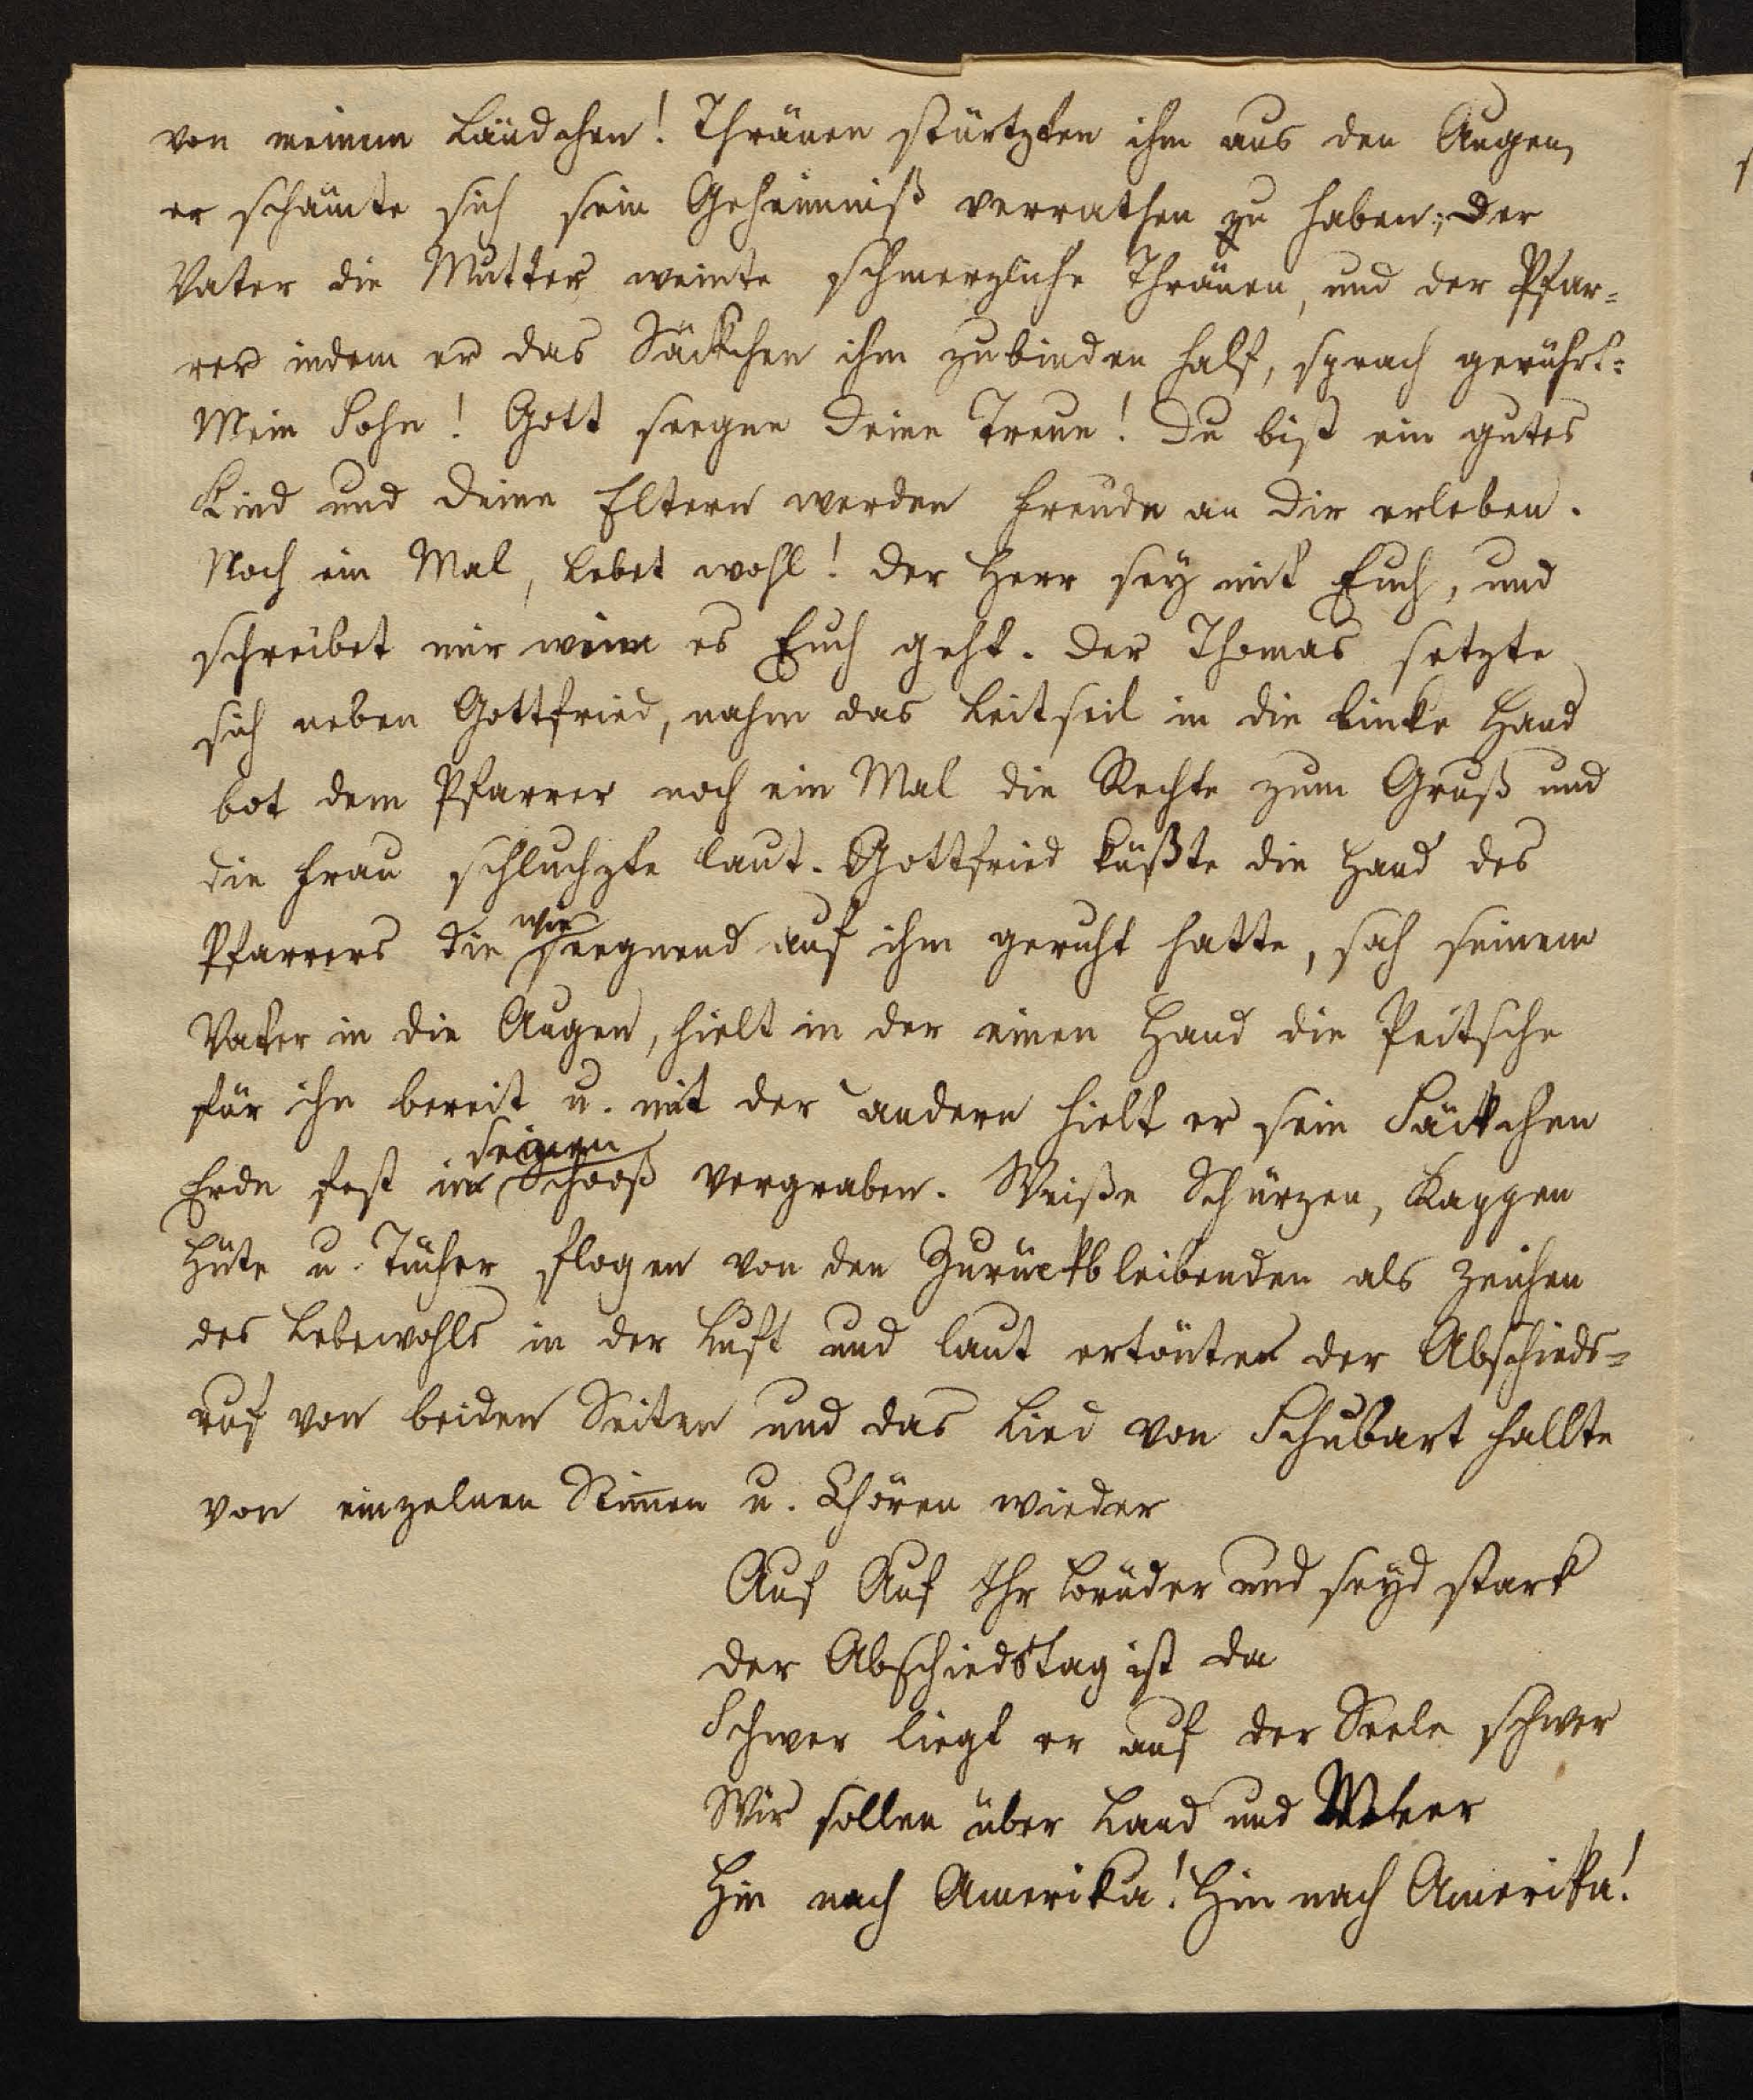 von meinem Ländchen! Thränen stürtzten ihm aus den Augen,
er schämte sich sein Geheimniß verrathen zu haben; der
Vater die Mutter weinte schmerzliche Thränen, und der Pfar-
rer indem er das Säckchen ihm zubinden half, sprach gerührt:
Mein Sohn! Gott seegne deine Treue! Du bist ein gutes
Kind und deine Eltern werden Freude an dir erleben.
Noch ein Mal, lebet wohl! der Herr sey mit Euch, und
schreibet mir wenn es Euch geht. der Thomas setzte
sich neben Gottfried, nahm das Leitseil in die linke Hand
bot dem Pfarrer noch ein Mal die Rechte zum Gruß und
die Frau schluchzte laut. Gottfried küßte die Hand des
Pfarrers die wie seegnend auf ihm geruht hatte, sah seinem
Vater in die Augen, hielt in der einen Hand die Peitsche
für ihn bereit u. mit der andern hielt er sein Säckchen
Erde fest in seinen Schooß vergraben. Weiße Schürzen, Kappen
Hüte u. Tücher flogen von den Zurückbleibenden als Zeichen
des Lebewohls in der Luft und laut ertönten der Abschieds-
ruf von beiden Seiten und das Lied von Schubart hallte
von einzelnen Stimen u. Chören wieder
Auf Auf Ihr Brüder und seyd stark
der Abschiedstag ist da
Schwer liegt er auf der Seele schwer
Wir sollen über Land und Meer
Hin nach Amerika! Hin nach Amerika!